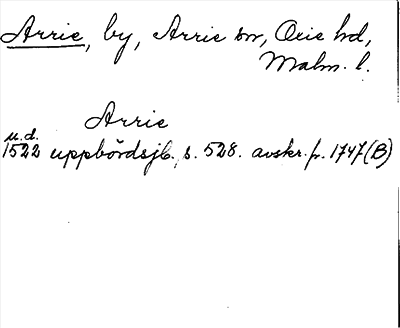 Arrie, by, Arrie sn, Oxie hd,
Malm. l.
Arrie
u.d.
1522 uppbördsjb. s. 528. avskr. fr. 1747 (B)